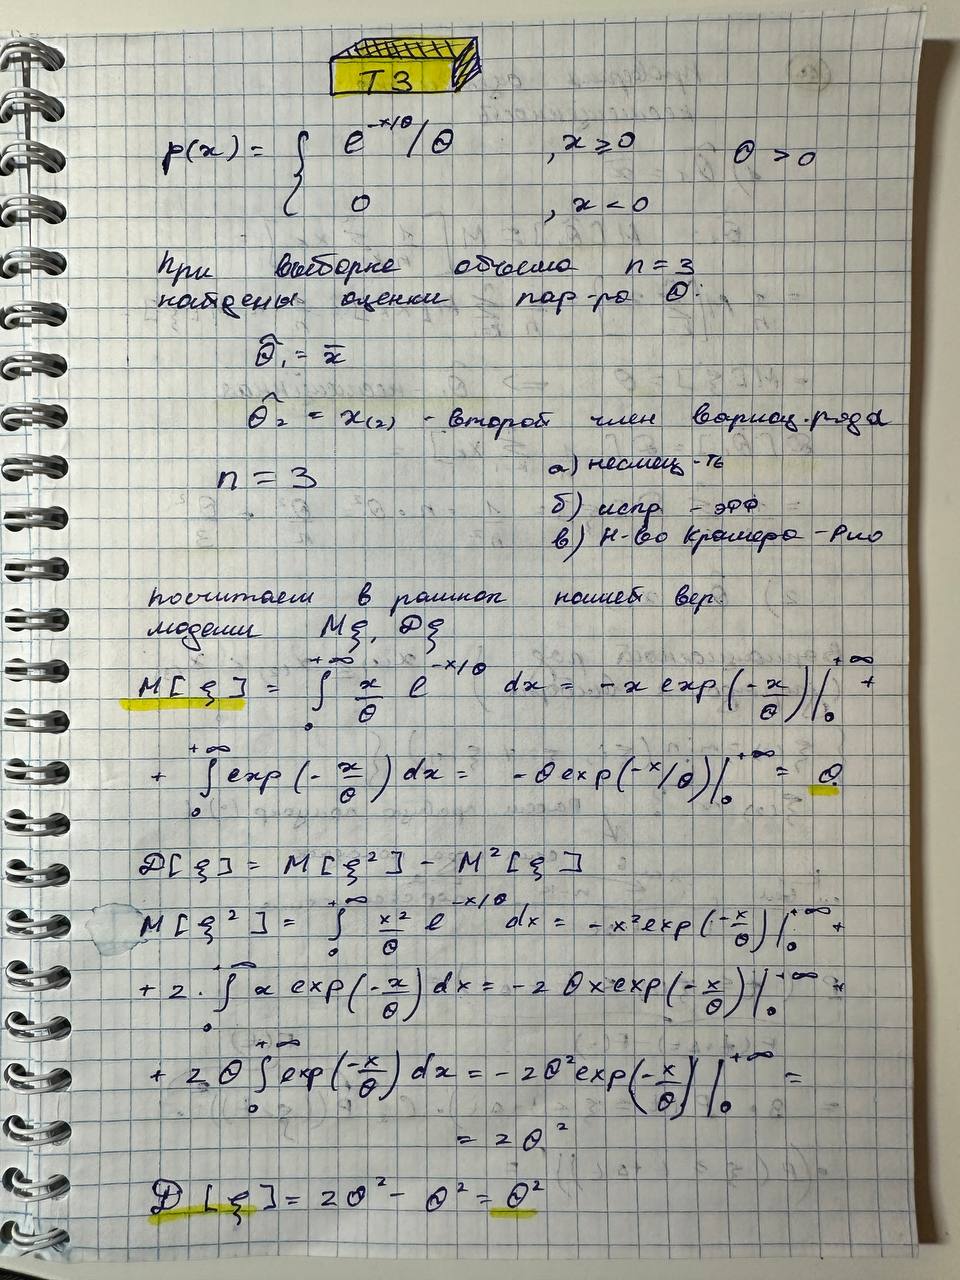 ТЗ
p(x) = { e^{-x/θ}/θ , x ≥ 0 θ > 0
0 , x < 0
При выборке объема n = 3
найдены оценки пар-ра θ:
θ̂₁ = x̄
θ̂₂ = x₍₂₎ - второй член вариац. ряда
n = 3
а) несмещ-ть
б) испр - эфф
в) Н-во Крамера - Рао
посчитаем в рамках нашей вер.
модели Mξ, Dξ
M[ξ] = ∫₀^{+∞} x/θ e^{-x/θ} dx = -x exp(-x/θ)|₀^{+∞} +
+ ∫₀^{+∞} exp(-x/θ) dx = -θ exp(-x/θ)|₀^{+∞} = θ
D[ξ] = M[ξ²] - M²[ξ]
M[ξ²] = ∫₀^{+∞} x²/θ e^{-x/θ} dx = -x² exp(-x/θ)|₀^{+∞} +
+ 2 · ∫₀^{+∞} x exp(-x/θ) dx = -2 θ x exp(-x/θ)|₀^{+∞} +
+ 2 θ ∫₀^{+∞} exp(-x/θ) dx = -2θ² exp(-x/θ)|₀^{+∞} =
= 2θ²
D[ξ] = 2θ² - θ² = θ²